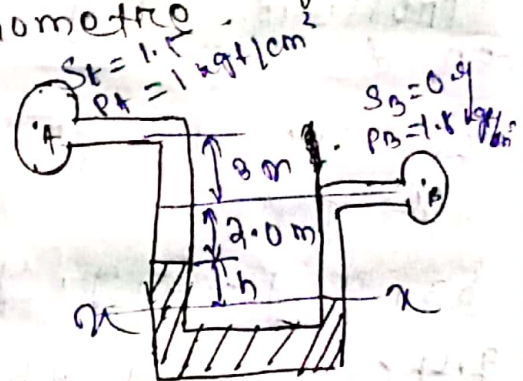 nometre
SA = 1.5
PA = 1 kgf/cm²
SB = 0.9
PB = 1.8 kgf/cm²
A
3 m
B
2.0 m
h
x
x